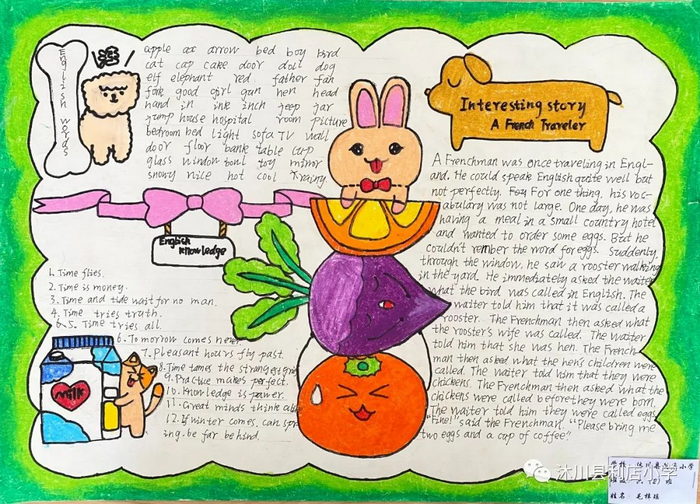 English words
apple axe arrow bed boy bird
cat cap cake door doll dog
elf elephant red father fan
fork good girl gun hen head
hand in ink inch jeep jar
jump house hospital room picture
bedroom bed light sofa TV wall
door floor bank table cup
glass window toul toy mirror
snowy nice hot cool rainy
English
Knowledge
1. Time flies.
2. Time is money.
3. Time and tide wait for no man.
4. Time tries truth.
5. Time tries all.
6. Tomorrow comes never
7. Pleasant hours fly past.
8. Time tames the strongest grie
9. Practice makes perfect.
10. Knowledge is power.
11. Great minds think alike
12. If winter comes, can spr
ing be far behind.
milk
Interesting story
A French Traveler
A Frenchman was once traveling in Engl-
and. He could speak English quite well but
not perfectly. For one thing, his voc-
abulary was not large. One day, he was
having a meal in a small country hotel
and wanted to order some eggs. But he
couldn't rember the word for eggs. Suddenly
through the window, he saw a rooster walking
in the yard. He immediately asked the waiter
what the bird was called in English. The
waiter told him that it was called a
rooster. The Frenchman then asked what
the rooster's wife was called. The waiter
told him that she was hen. The French
man then asked what the hen's children were
called. The waiter told him that they were
chickens. The Frenchman then asked what the
chickens were called before they were born.
The waiter told him they were called eggs
"Fine!" said the Frenchman. "Please bring me
two eggs and a cup of coffee"
沐川县利店小学